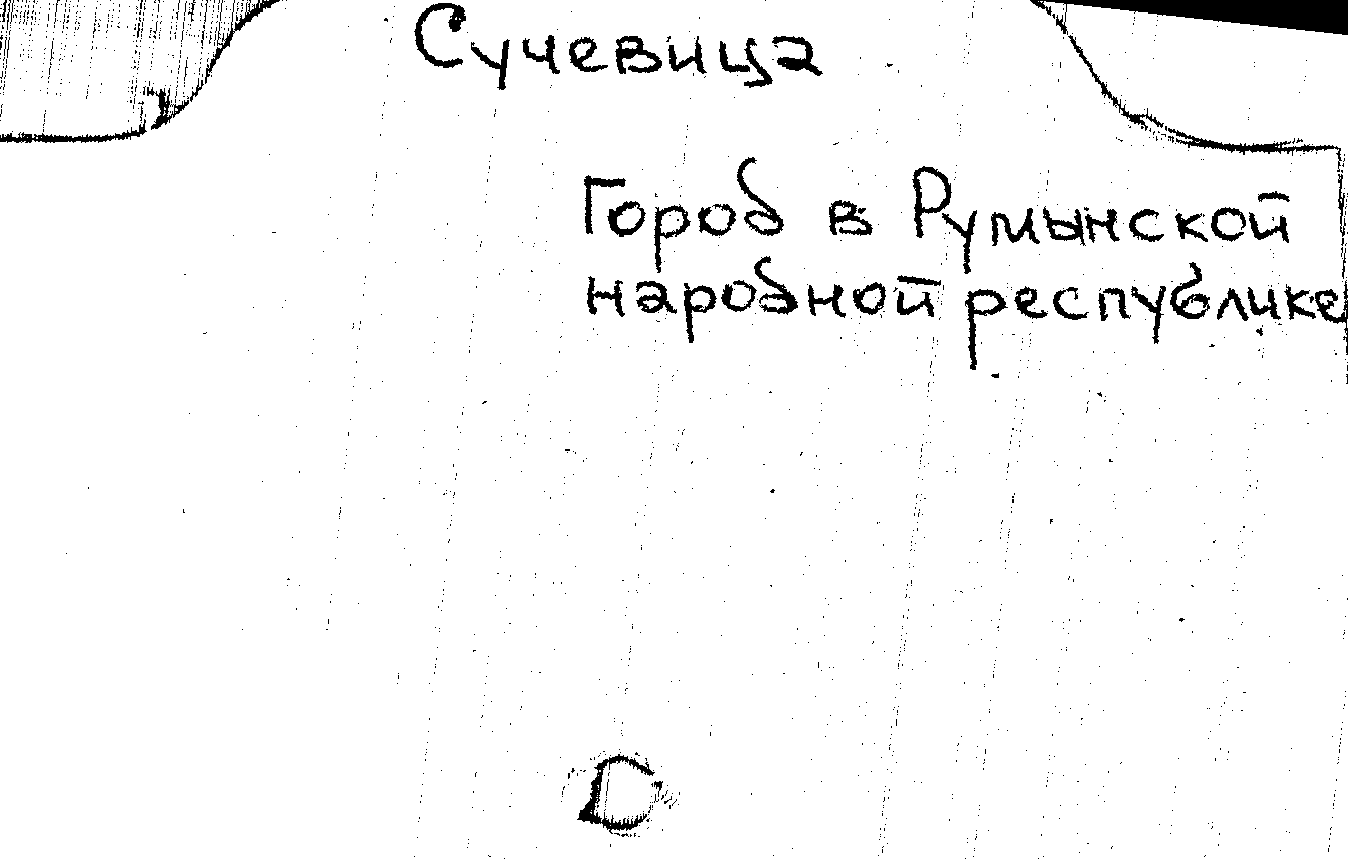 Сучевица
Город в Румынской
народной республике